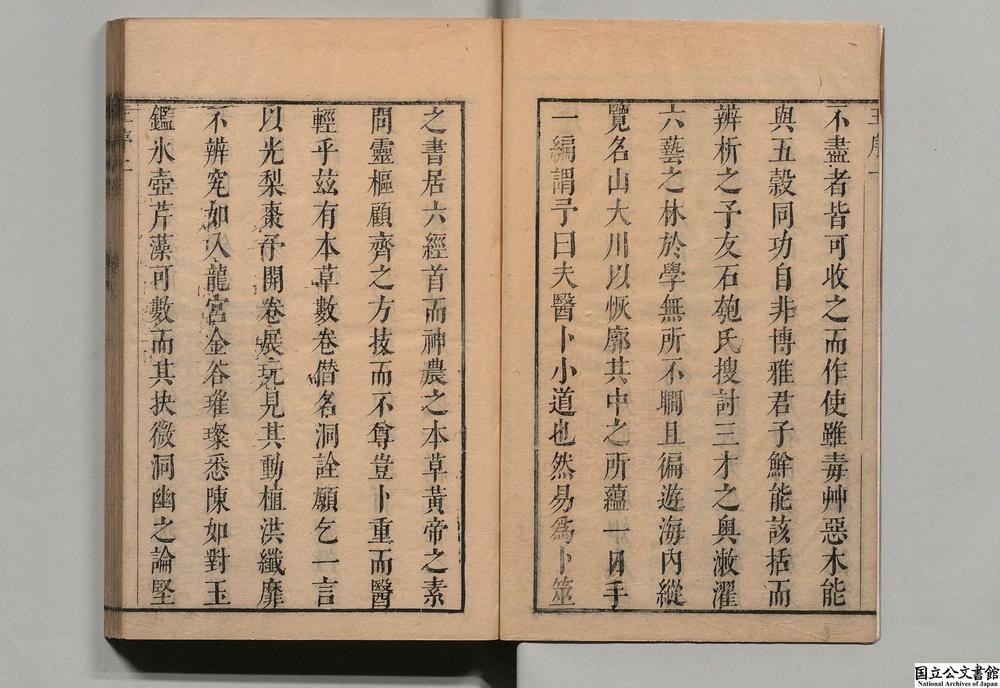 不盡者皆可收之而作使雖毒艸惡木能
與五穀同功自非博雅君子鮮能該括而
辨析之予友石匏氏搜討三才之奧漱濯
六藝之林於學無所不瞯且徧遊海內縱
覽名山大川以恢廓其中之所蘊一日手
一編謂予曰夫醫卜小道也然易爲卜筮
之書居六經首而神農之本草黃帝之素
問靈樞顧齊之方技而不尊豈卜重而醫
輕乎玆有本草數卷僭名洞詮願乞一言
以光梨棗予開卷展玩見其動植洪纖靡
不辨究如入龍宮金谷璀璨悉陳如對玉
鑑氷壺芹藻可數而其抉微洞幽之論堅
国立公文書館
National Archives of Japan